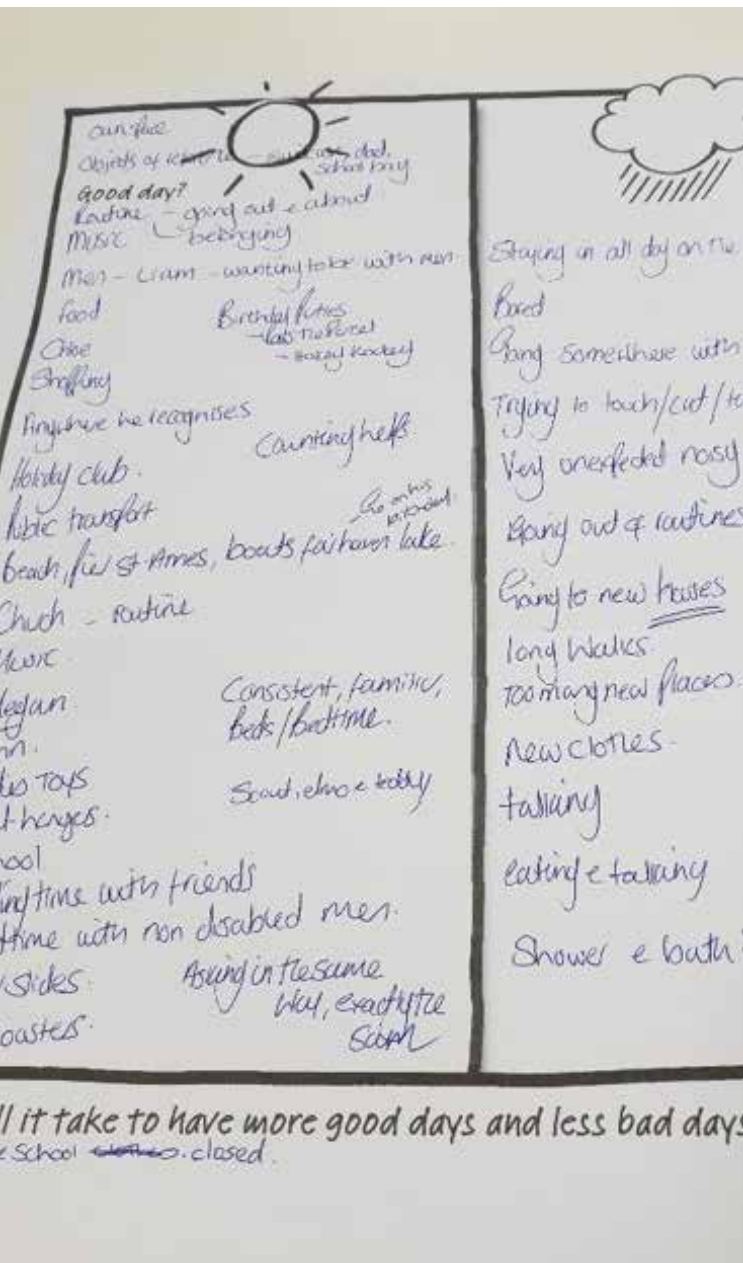 own space
Objects of dad,
school bag
Good day?
Routine - going out e about
Music belonging
Men - Liam - wanting to be with men
food
Birthday Parties
- Pass the Parcel
- Hokey Kockey
Chloe
Shopping
Anywhere he recognises
Counting helps
Holiday club.
Public transport
- Go on his
beach, pier St Annes, boats fairhaven lake.
Church - routine
Music
Megan
Consistent, familiar,
Beds/Bedtime.
Toys
Scout, elmo e teddy
hool
time with friends
time with non disabled men.
slides.
Asking in the same
way, exactly the
same
oasters.
Staying in all day on the
Bored
Going somewhere with
Trying to touch/cut/
Very unexpected noisy
Going out of routines
Going to new houses
long walks
Too many new places
New clothes.
talking
eating e talking
Shower e bath
ll it take to have more good days and less bad days
School closed.